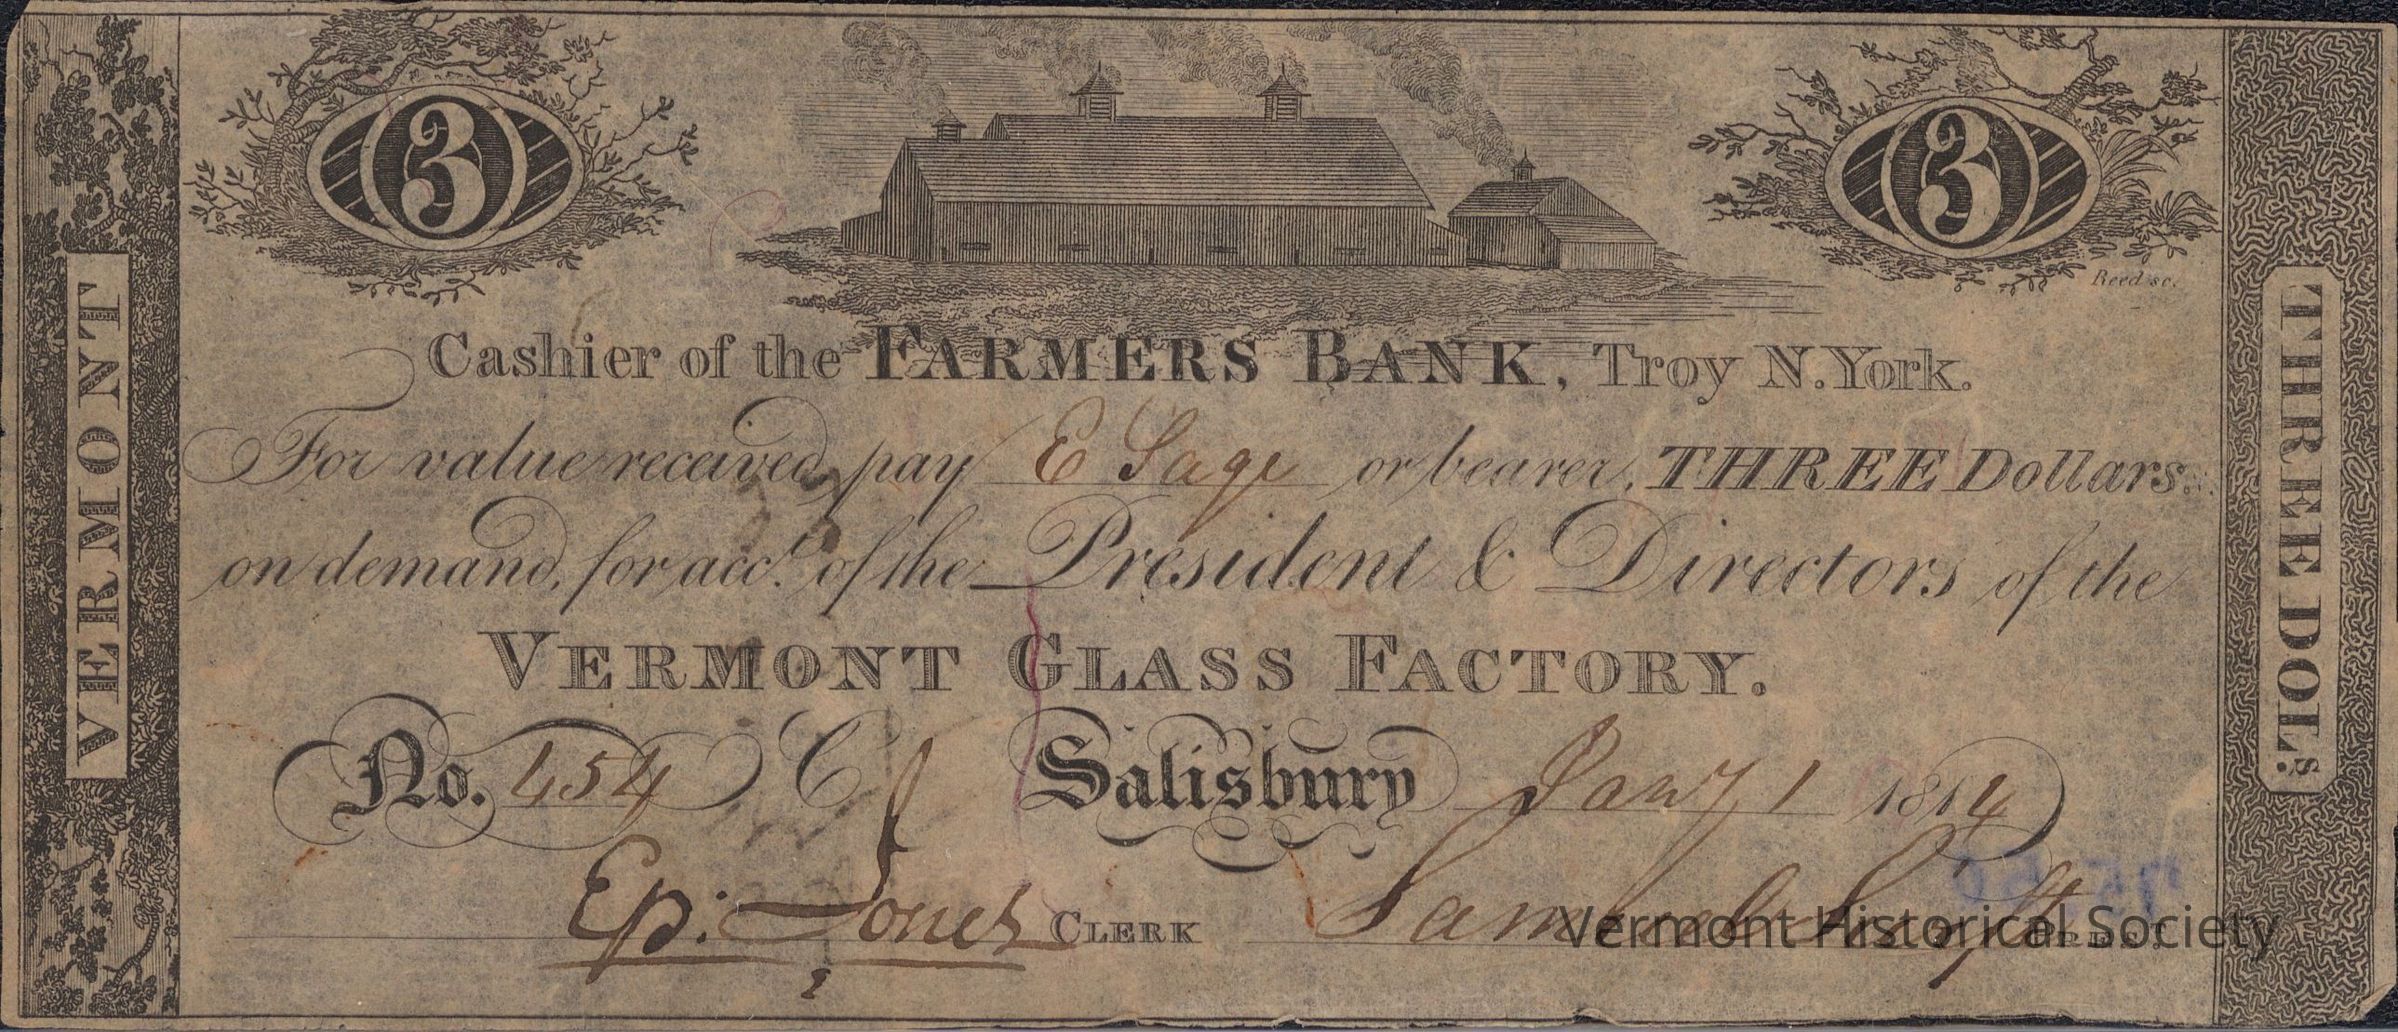 3
3
Reed sc.
VERMONT
THREE DOLS.
Cashier of the FARMERS BANK, Troy N. York.
For value received pay E Sage or bearer, THREE Dollars
on demand, for acct. of the President & Directors of the
VERMONT GLASS FACTORY.
No. 454 C Salisbury Jany 1 1814
Ep: Jones CLERK Samuel Swift PREST.
Vermont Historical Society